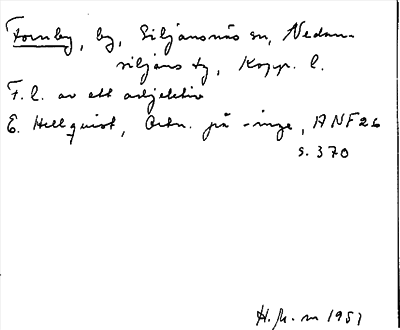 Fornby, by, Siljansnäs sn, Nedan-
siljans tg, Kopp. l.
F.l. av ett adjektiv
E. Hellquist, Ortn. på -inge, ANF 26
s. 370
H. m 1951